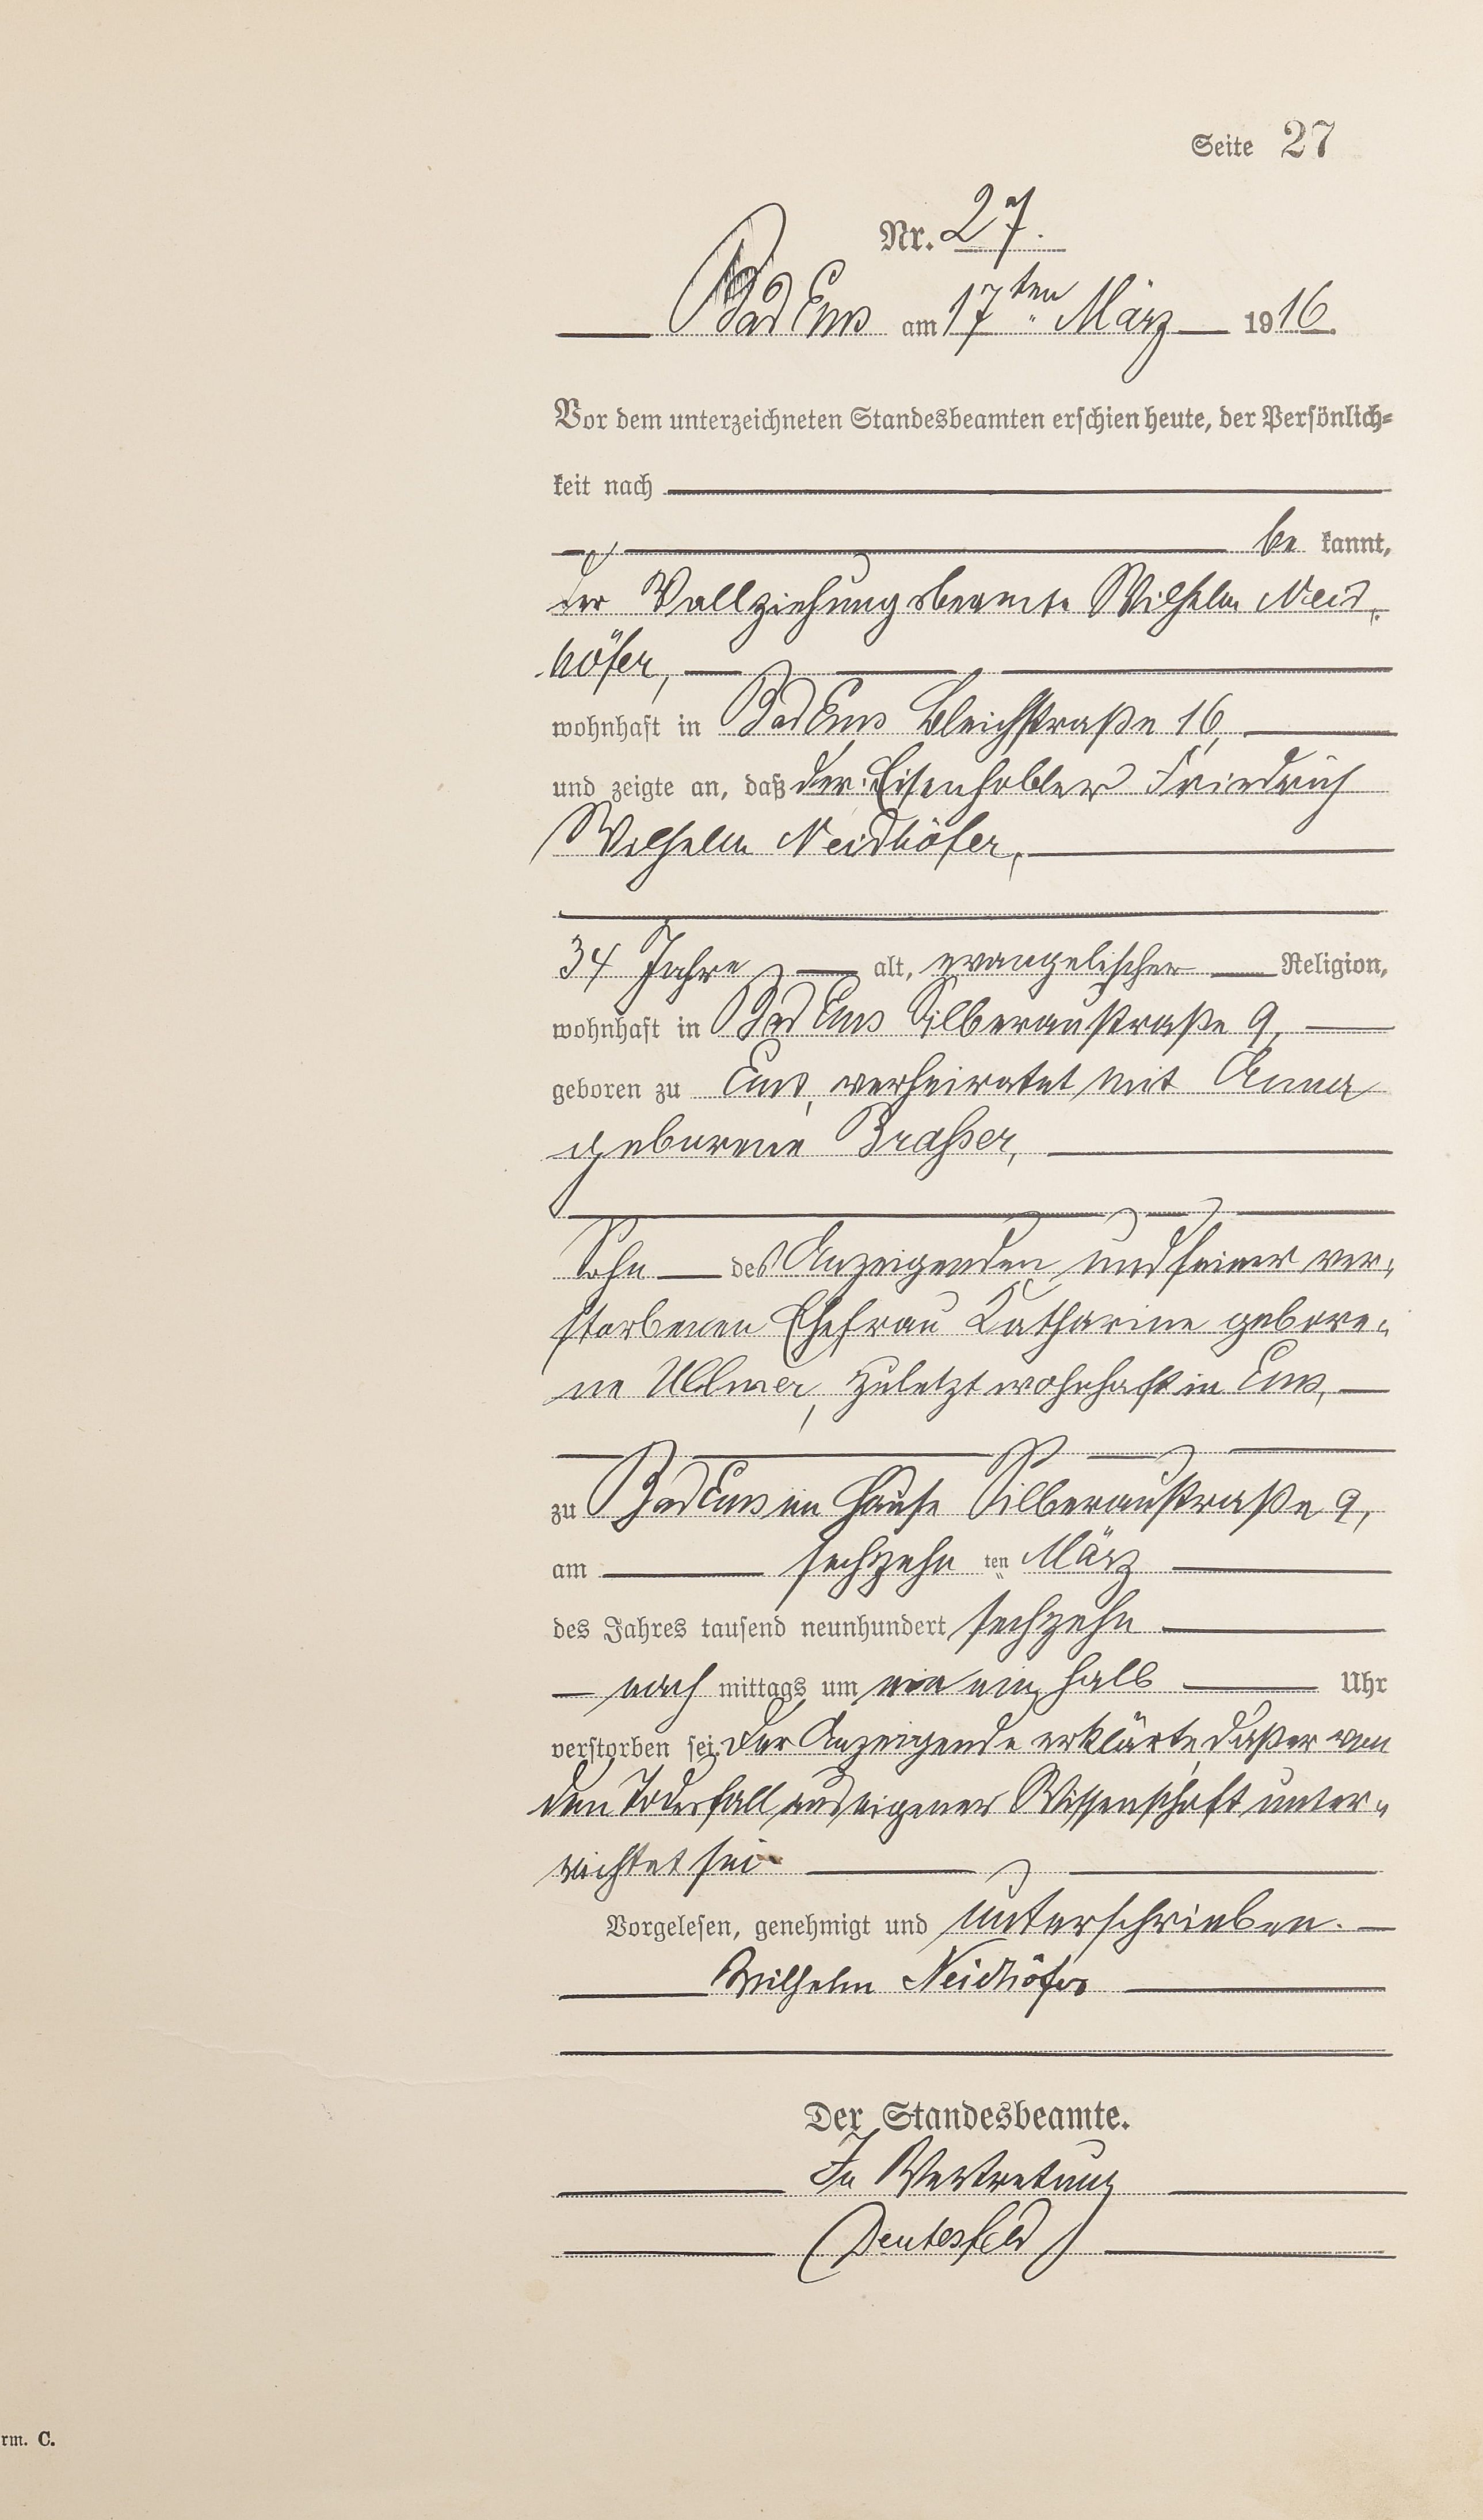 Seite 27
Nr. 27.
Bad Ems am 17ten März 1916.
Vor dem unterzeichneten Standesbeamten erschien heute, der Persönlich-
keit nach
be kannt,
der Vollziehungsbeamte Wilhelm Neid-
höfer,
wohnhaft in Bad Ems Bleichstraße 16,
und zeigte an, daß der Eisenhobler Friedrich
Wilhelm Neidhöfer,
34 Jahre alt, evangelischer Religion,
wohnhaft in Bad Ems Silberaustraße 9,
geboren zu Ems, verheiratet mit Anna
geborene Brasser,
Sohn des Anzeigenden und seiner ver-
storbenen Ehefrau Katharine gebore-
ne Ullmer, zuletzt wohnhaft in Ems,
zu Bad Ems im Hause Silberaustraße 9,
am sechzehn ten März
des Jahres tausend neunhundert sechzehn
nach mittags um ein halb Uhr
verstorben sei. Der Anzeigende erklärte, daß er von
dem Todesfall aus eigener Wissenschaft unter-
richtet sei
Vorgelesen, genehmigt und unterschrieben.
Wilhelm Neidhöfer
Der Standesbeamte.
In Vertretung
(Deutesfeld)
rm. C.